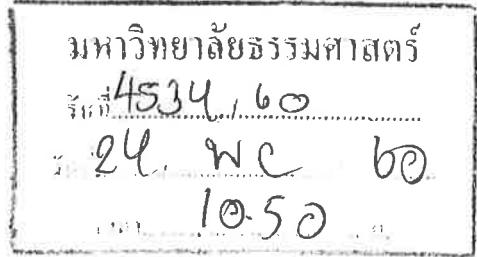 มหาวิทยาลัยธรรมศาสตร์
รับที่ 4534, ๖๐
24. พC ๖๐
เวลา 10.50 น.